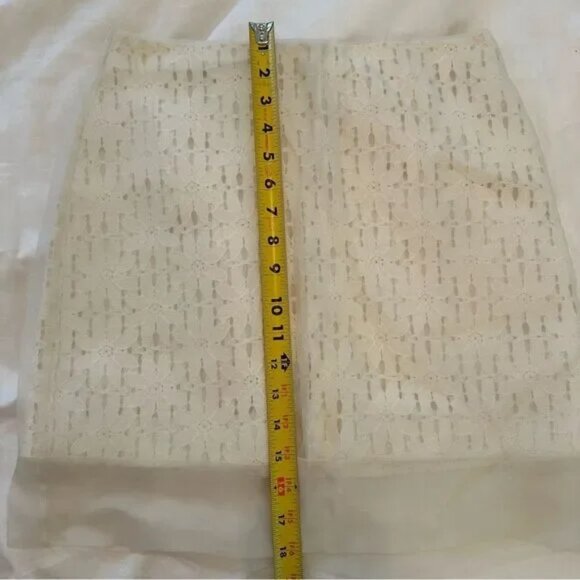 1
2
3
4
5
6
7
8
9
10
11
12
13
14
15
17
18